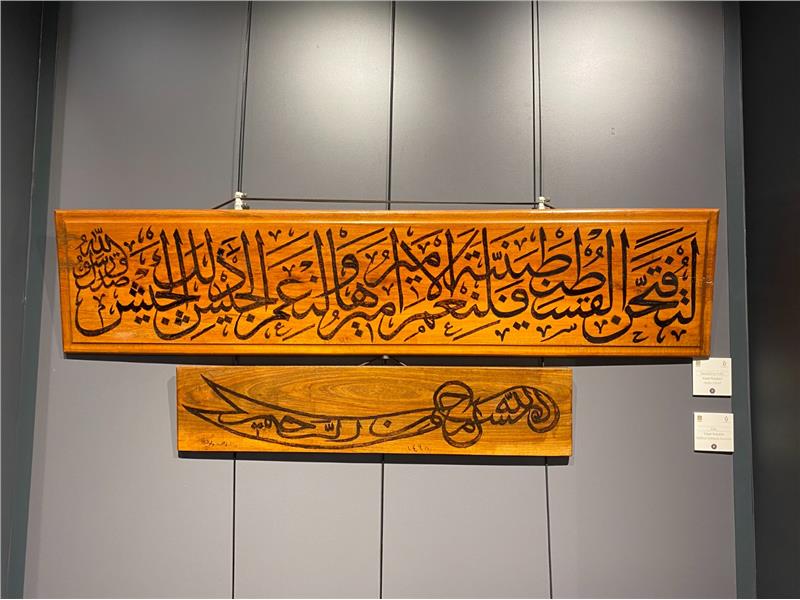 لتفتحن القسطنطينية فلنعم الامير اميرها ولنعم الجيش ذلك الجيش صدق رسول الله
بسم الله الرحمن الرحيم